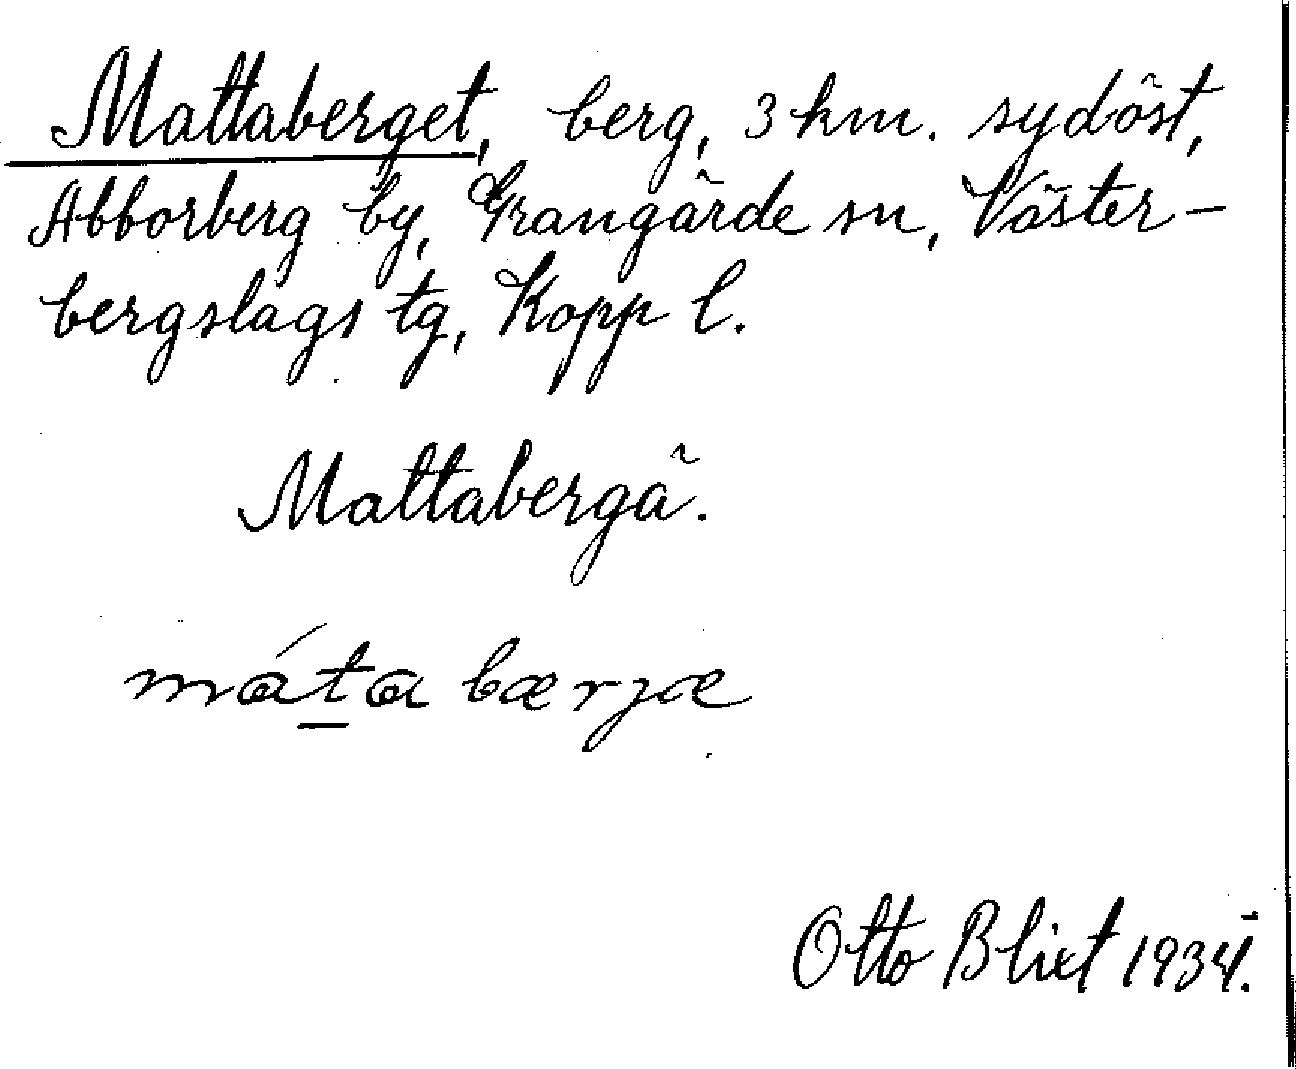 Mattaberget, berg, 3 km. sydöst,
Abborberg by, Grangärde sn, Väster-
bergslags tg, Kopp l.
Mattabergä.
máta bærjæ
Otto Blixt 1934.